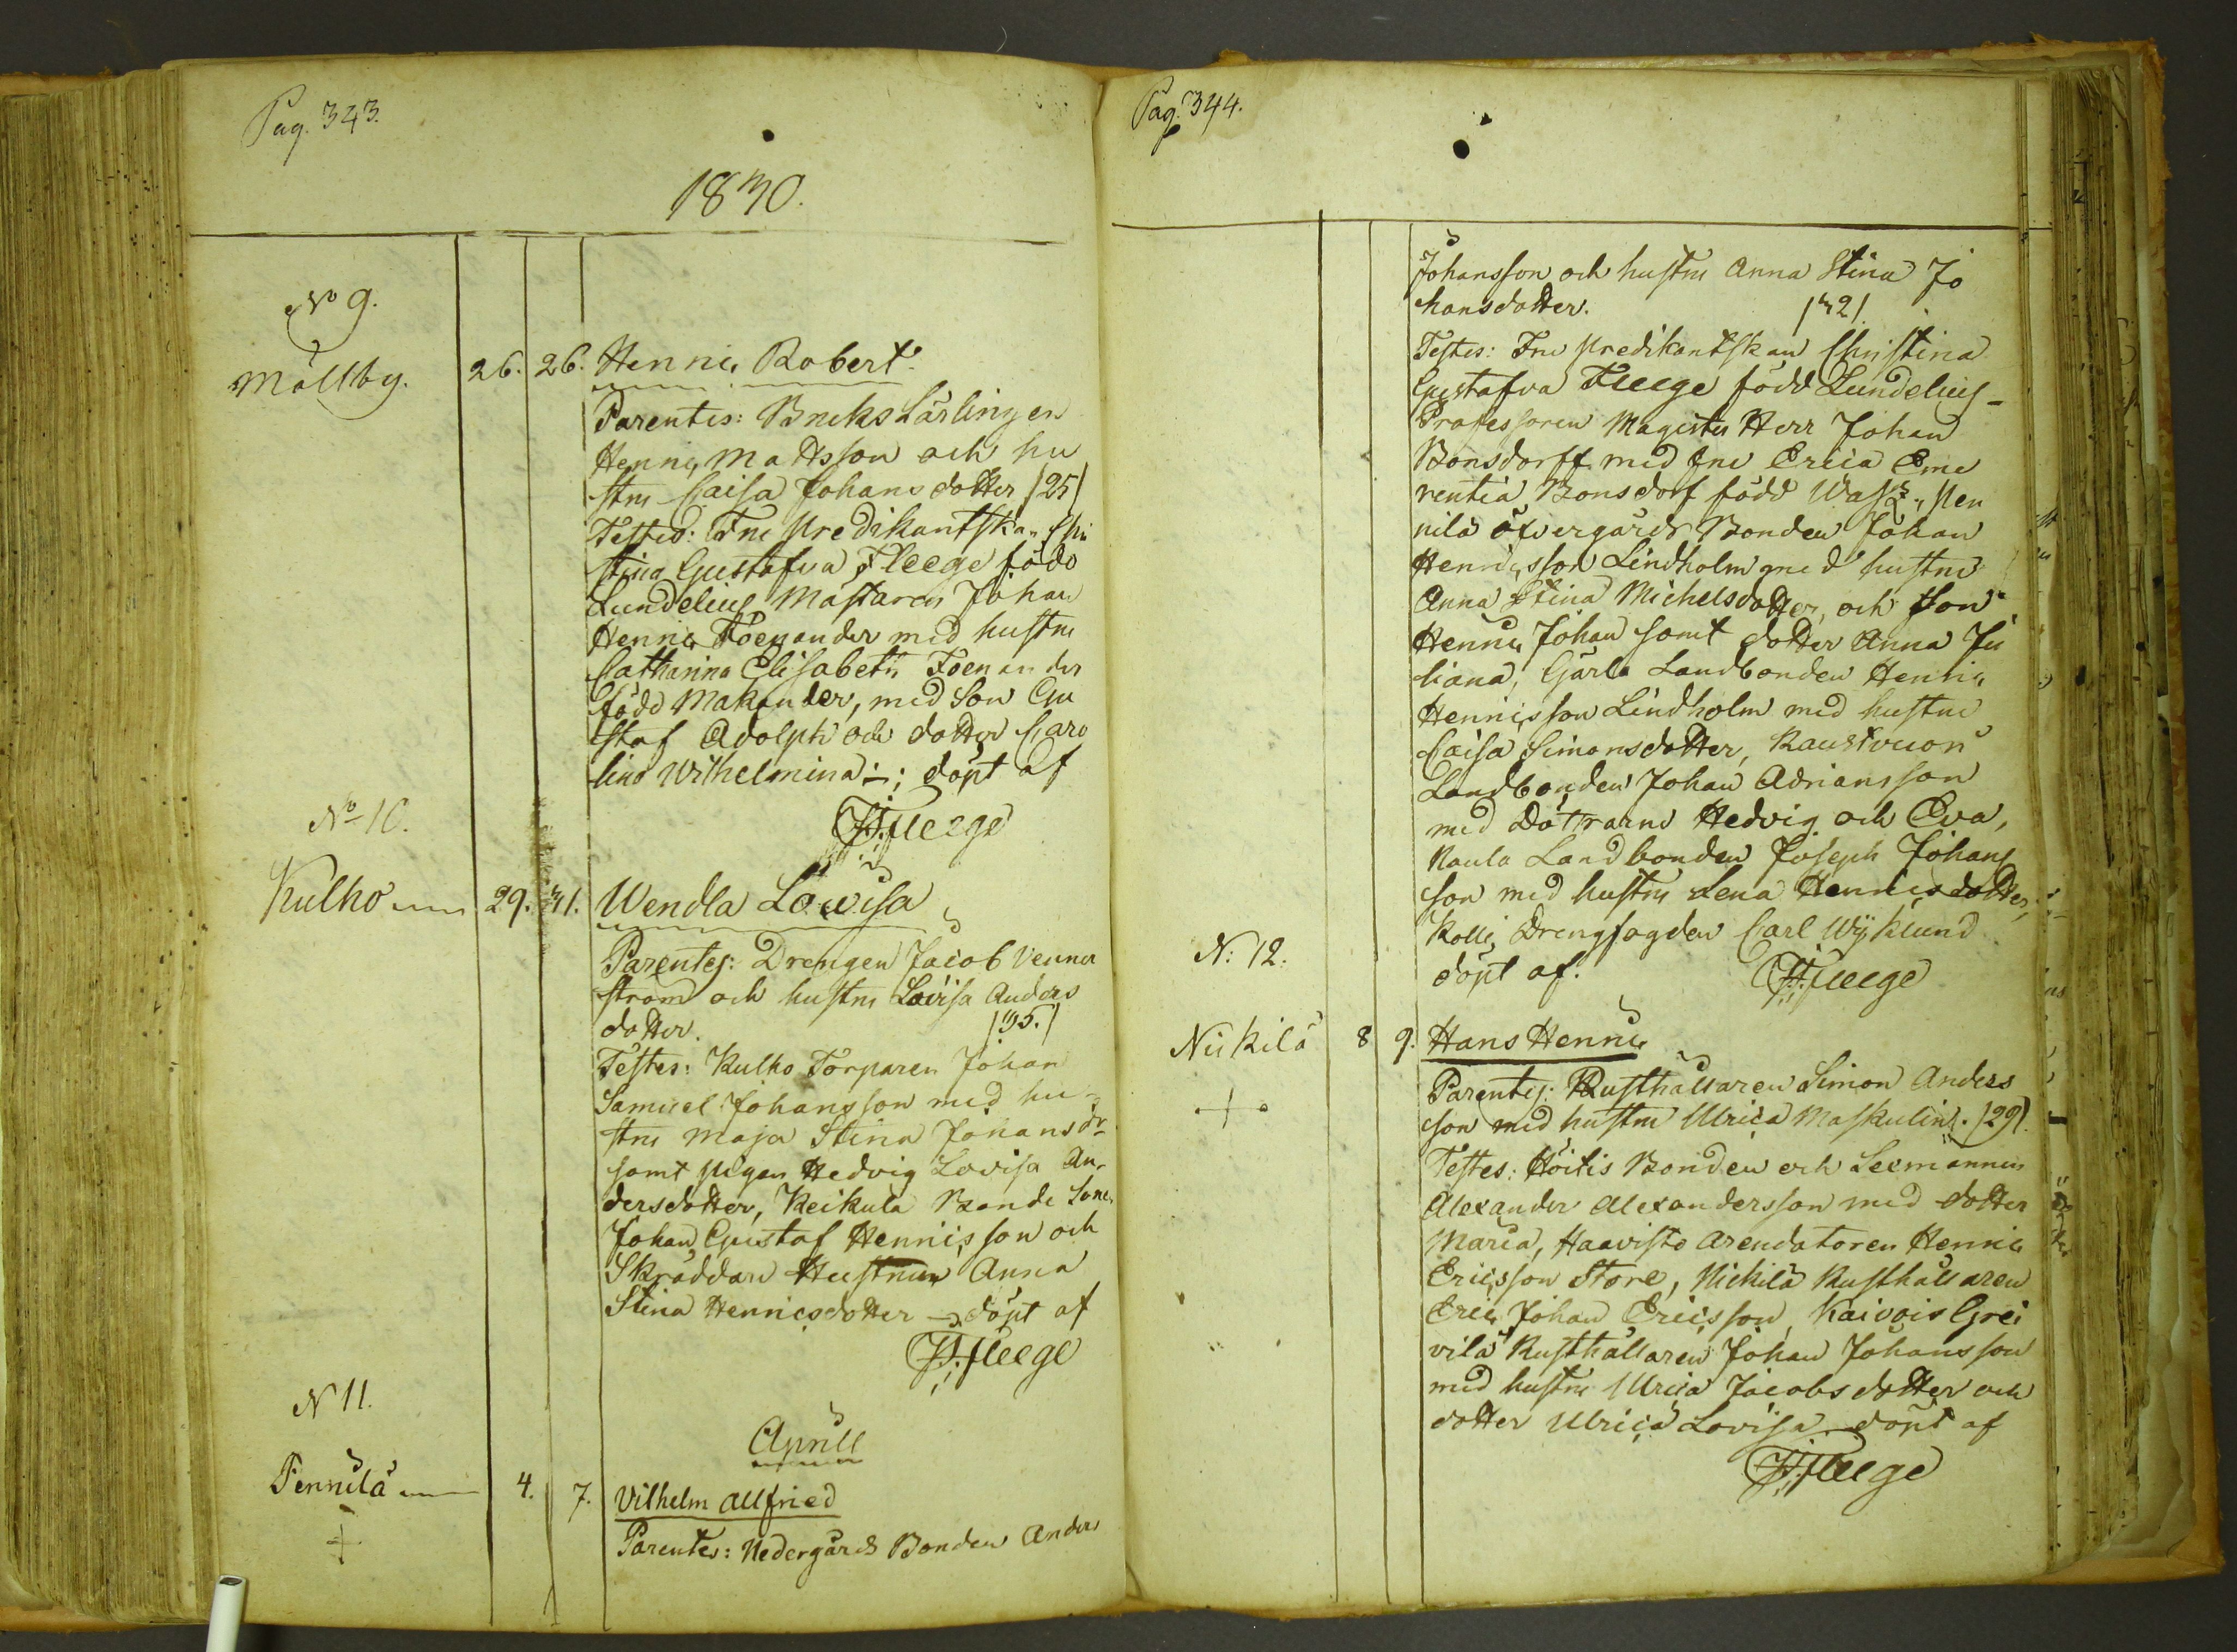 Pag. 343.
1830.
No 9.
Mällby. 26. 26. Henric Robert
Parentes: Bruks Lärlingen
Henric Mattsson och hu
stru Caisa Johansdotter /25/
Testes: Fru Predikantskan Chri
stina Gustafva Fleege född
Lundelius, Mästaren Johan
Henric Foenander med hustru
Catharina Elisabeth Foenander
född Makander, med Son Gu
staf Adolph och dotter Caro
lina Wilhelmina; döpt af
Fleege
No 10.
Kulho 29. 31. Wendla Lowisa
Parentes: Drengen Jacob Venner
ström och hustru Lovisa Anders
dotter. /35./
Testes: Kulho Torparen Johan
Samuel Johansson med hu-
stru Maja Stina Johansdr
samt Pigan Hedvig Lovisa An-
dersdotter, Keikula Bonde Sonen
Johan Gustaf Henricsson och
Skräddare Hustrun Anna
Stina Henricsdotter döpt af
Fleege
N 11.
Aprill
Pennilä 4. 7. Vilhelm Allfried
Parentes: Nedergårds Bonden Anders
Pag. 344.
Johansson och hustru Anna Stina Jo
hansdotter. /32/.
Testes: Fru Predikantskan Christina
Gustafva Fleege född Lundelius
Professoren Magister Herr Johan
Bonsdorff med Fru Erica Eme
rentia Bonsdorf född Wass, Pen
nilä öfvergårds Bonden Johan
Henricsson Lindholm med hustru
Anna Stina Michelsdotter, och Son
Henric Johan samt dotter Anna Ju
liana, Gärla Landbonden Henric
Henricsson Lindholm med hustru
Caisa Simonsdotter, Raustvuori
Landbonden Johan Adriansson
med Döttrarne Hedvig och Eva,
Kaula Landbonden Joseph Johans
son med hustru Lena Henricsdotter,
Kolli Drengfogden Carl Wyklund
döpt af. Fleege
N: 12.
Niikilä 8 9. Hans Henric
Parentes: Rusthållaren Simon Anders
son med hustru Ulrica Maskulin. /29/.
Testes: Höitis Bonden och Sexmannen
Alexander Alexandersson med dotter
Maria, Haavisto Arendatoren Henric
Ericsson Store, Nickilä Rusthållaren
Eric Johan Ericsson, Kaivois Grei
vilä Rusthållaren Johan Johansson
med hustru Ulrica Jacobsdotter och
dotter Ulrica Lovisa döpt af
Fleege